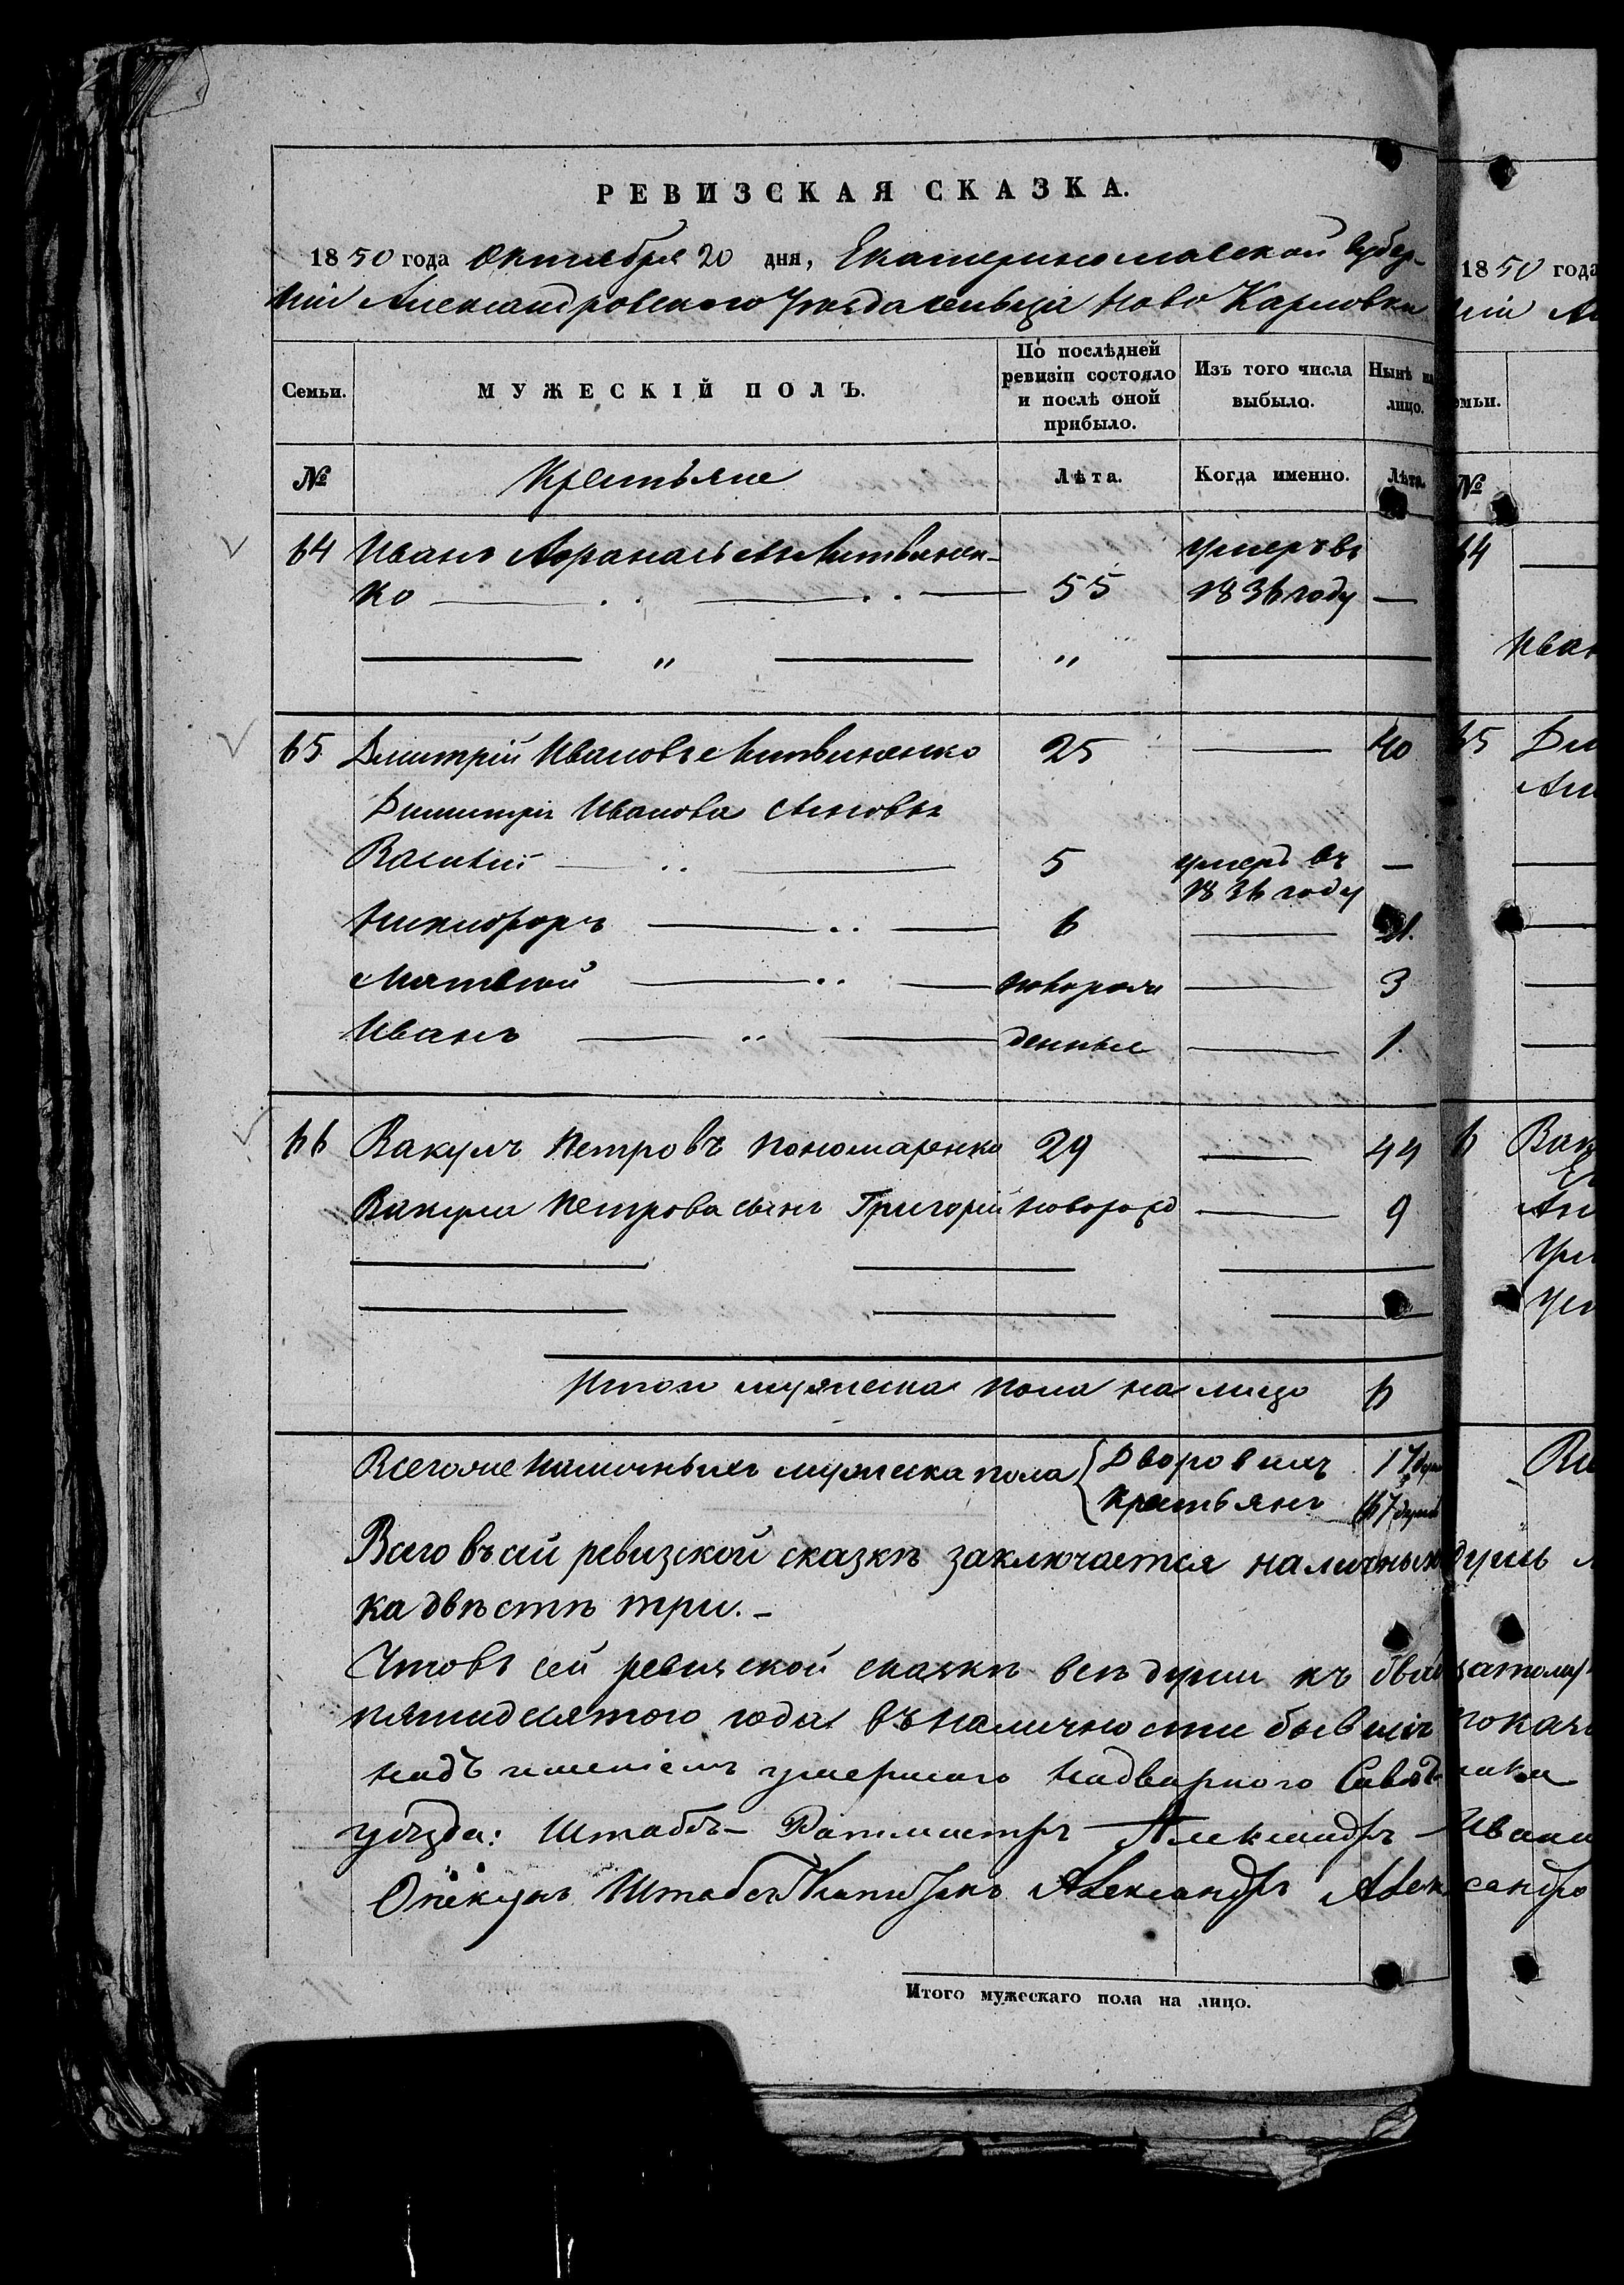 РЕВИЗСКАЯ СКАЗКА.
1850 года Октября 20 дня, Екатеринославской Губер-
ніи Александровского Уезда сельца Ново Карловки
Семьи.
МУЖЕСКІЙ ПОЛЪ.
По послѣдней ревизіи состояло и послѣ оной прибыло.
Изъ того числа выбыло.
Нынѣ на лицо.
№
Крестьяне
Лѣта.
Когда именно.
Лѣта.
64 Иванъ Афанасьевъ Литвинен-
ко 55 умеръ въ 1836 году —
65 Дмитрій Ивановъ Литвиненко 25 — 40
Димитрія Иванова сыновья
Василий 5 умеръ въ 1836 году —
Никифоръ 6 — 21.
Матвей новорож 3
Иванъ денные 1.
66 Вакулъ Петровъ Пономаренко 29 — 44
Вакулы Петрова сынъ Григорій новорожд — 9
Итого мужеска пола на лицо 6
Всего же наличныхъ мужеска пола { Дворовыхъ 17 душ
Крестьянъ
Всего въ сей ревизской сказкѣ заключается наличныхъ душъ
ка двѣстѣ три.-
Что въ сей ревизской сказкѣ всѣ души къ
пятидесятого года въ наличности бывшія показ
надъ имѣніемъ умершаго Надворного Совѣт ника
уѣзда: Штабъ-Ротмистръ Александръ Ивано
Опекунъ Штабсъ Капитанъ Александръ Александро
Итого мужескаго пола на лицо.
1850 года
ніи Ал
емьи.
№
64
Иван
65 Дм
Ан
6 Вак
Ан